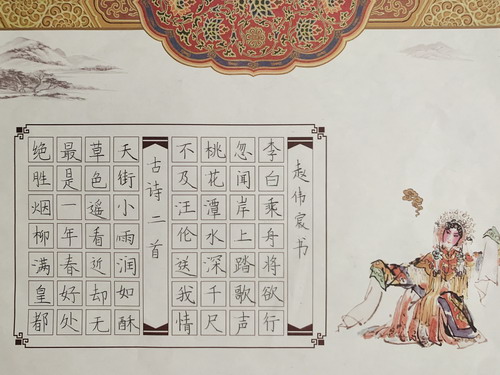 赵伟宸书
李白乘舟将欲行
忽闻岸上踏歌声
桃花潭水深千尺
不及汪伦送我情
古诗二首
天街小雨润如酥
草色遥看近却无
最是一年春好处
绝胜烟柳满皇都